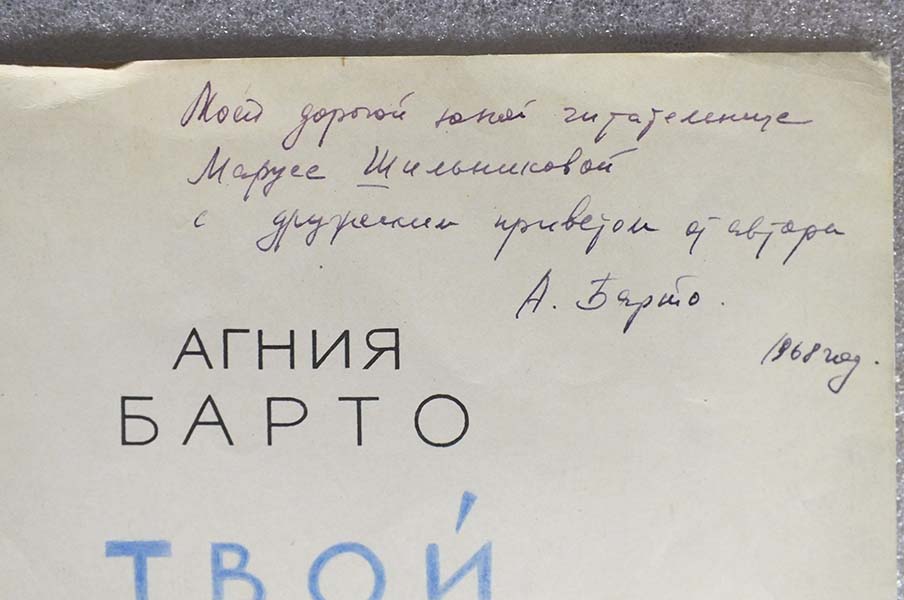 Моей дорогой юной читательнице
Марусе Шильниковой
с дружеским приветом от автора
А. Барто.
1968 год.
АГНИЯ
БАРТО
ТВОЙ